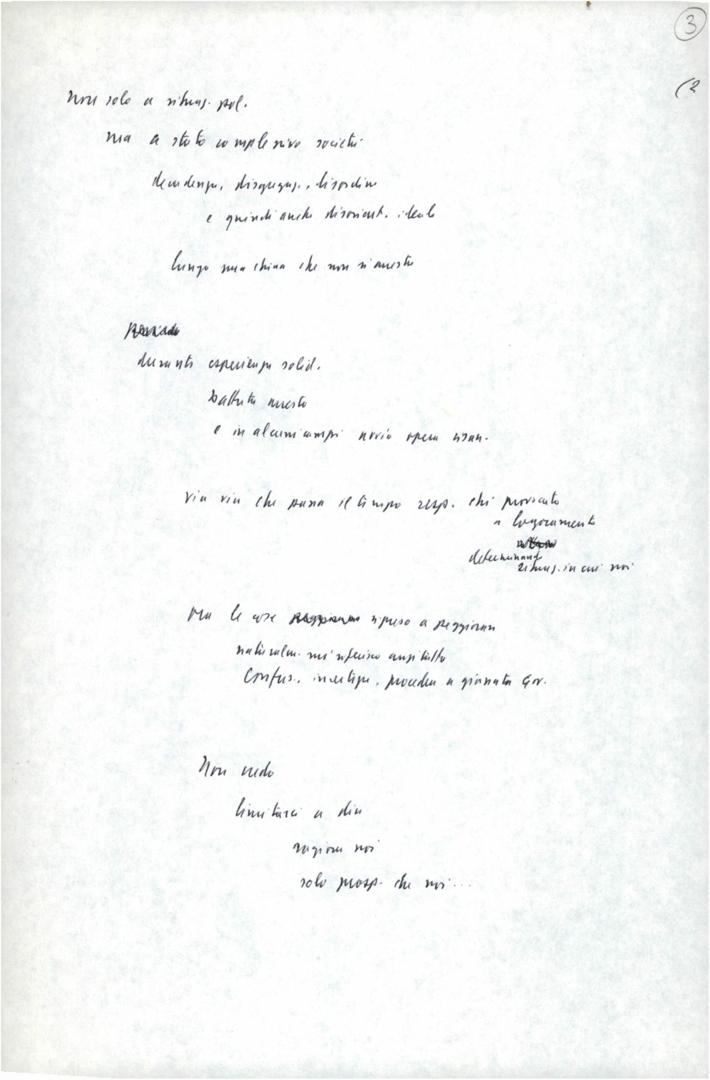 3
(2
Non solo a situaz. pol.
ma a stato complessivo società
decadenza, disgregaz., disordine
e quindi anche disorient. ideale
lungo una china che non si arresta
durante esperienza solid.
battuta arresto
e in alcuni campi avvio opera risan.
via via che passa il tempo resp. chi provocato
a logoramento
determinano
situaz. in cui noi
Ma le cose ripreso a peggiorare
naturalm. mi riferisco anzitutto
Confus., incertezze, procedere a giornata Gov.
Non credo
limitarci a dire
ragione noi
solo prosp. che noi...